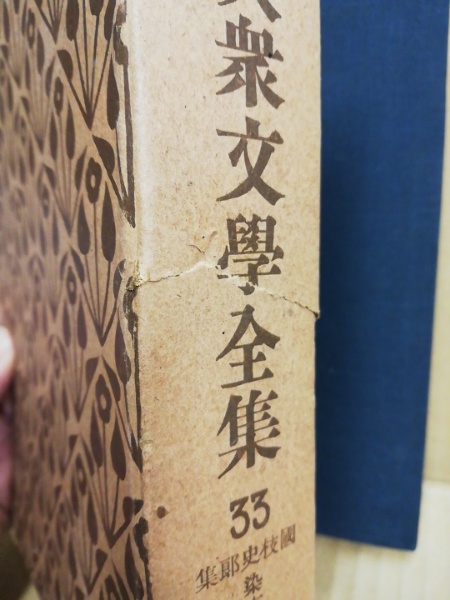 大衆文學全集
33
國枝史郎集
染